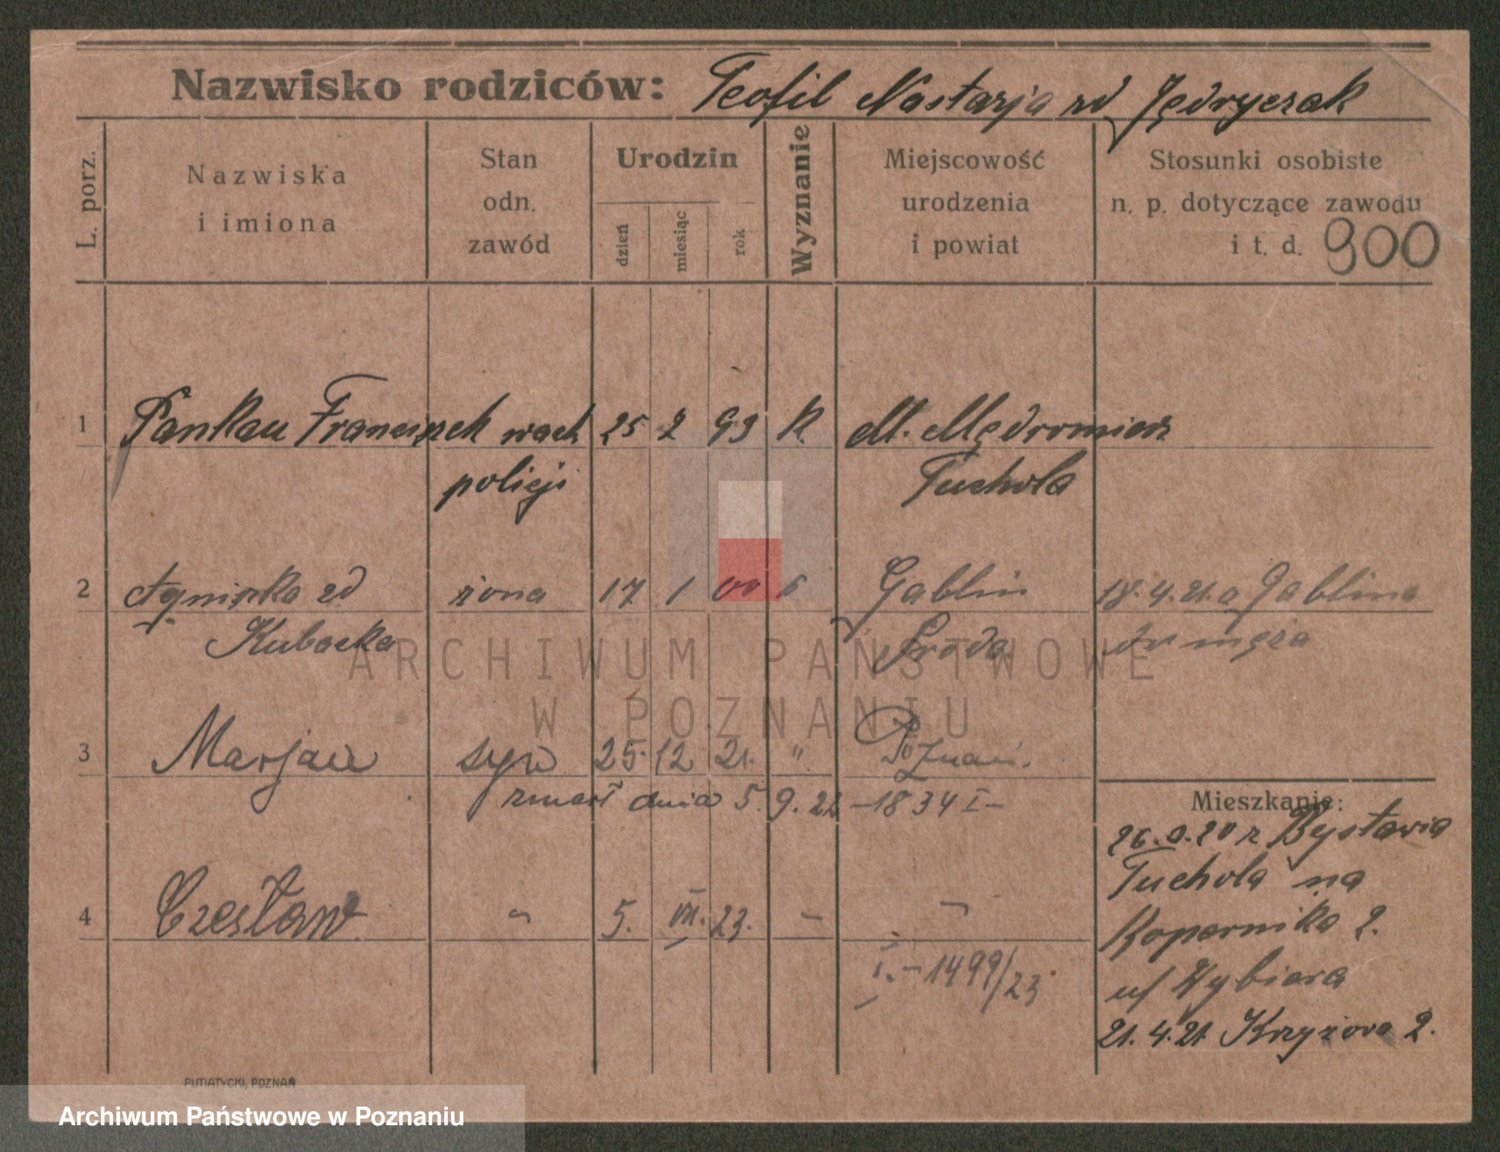 Nazwisko rodziców: Teofil Nastazja zd Jędryczak
L. porz.
Nazwiska
i imiona
Stan
odn.
zawód
Urodzin
dzień
miesiąc
rok
Wyznanie
Miejscowość
urodzenia
i powiat
Stosunki osobiste
n. p. dotyczące zawodu
i t. d. 900
1 Pankau Franciszek wach 25 2 93 K. M. Mędromierz
policji Tuchola
2 Agnieszka zd żona 17 1 00 Gablin 18.4.21. z Gablina
Kubacka Środa do męża
3 Marjan syn 25. 12 21. " Poznań.
zmarł dnia 5. 9. 22 -1834 I-
Mieszkanie:
z Bysławia
Tuchola na
4 Czesław 5. VII. 23.
Kopernika 2.
I. - 1499/23
u/ Wybiera
21. 4. 21. Krzyżowa 2.
PUTIATYCKI, POZNAŃ
ARCHIWUM PAŃSTWOWE
W POZNANIU
Archiwum Państwowe w Poznaniu